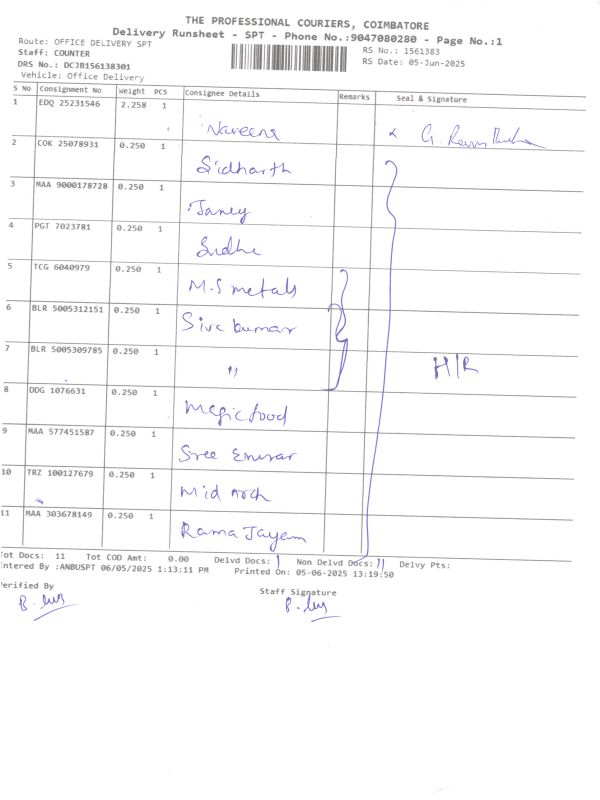 THE PROFESSIONAL COURIERS, COIMBATORE
Delivery Runsheet - SPT - Phone No.:9047080280 - Page No.:1
Route: OFFICE DELIVERY SPT
RS No.: 1561383
Staff: COUNTER
RS Date: 05-Jun-2025
DRS No.: DCJB156138301
Vehicle: Office Delivery
S No Consignment No Weight PCS Consignee Details Remarks Seal & Signature
1 EDQ 25231546 2.258 1 Naveena
2 COK 25078931 0.250 1 Sidharth
3 MAA 9000178728 0.250 1 Janey
4 PGT 7023781 0.250 1
5 TCG 6040979 0.250 1 M.S metals
6 BLR 5005312151 0.250 1 Siva kumar
7 BLR 5005309785 0.250 1 " H/R
8 DDG 1076631 0.250 1 Megic food
9 MAA 577451587 0.250 1 Sree
10 TRZ 100127679 0.250 1 Mid Arch
11 MAA 303678149 0.250 1 Rama Jayam
Tot Docs: 11 Tot COD Amt: 0.00 Delvd Docs: 1 Non Delvd Docs: 11 Delvy Pts:
Entered By :ANBUSPT 06/05/2025 1:13:11 PM Printed On: 05-06-2025 13:19:50
Verified By
Staff Signature